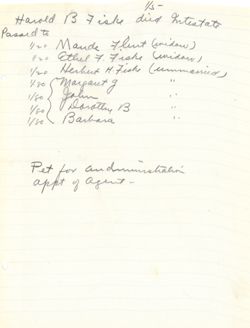 1/5-
Harold B Fiske died Intestate
Passed to
1/20 Maude Flint (widow)
1/20 Ethel F Fiske (widow)
1/20 Herbert H Fiske (unmarried)
1/80 Margaret J "
1/80 John "
1/80 Dorothy B "
1/80 Barbara "
Pet for administration
appt of agent -